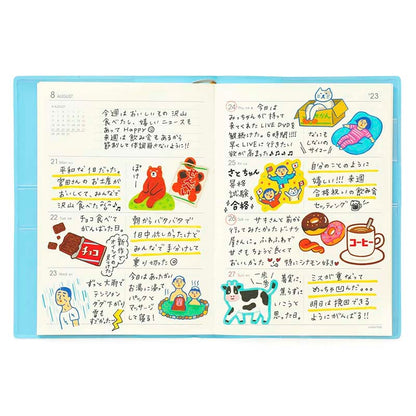 8 AUGUST
今週はおいしいもの沢山
食べたし、嬉しいニュースも
あって Happy
来週は飲み会もあるから
節制して体調崩さないように!!
21
平和な1日だった。
営田さんのお土産が
おいしくて、みんなで
沢山食べた
ぼけー
22
チョコ食べて
がんばった日。
チョコ
新作でてた
朝からバタバタで
1日中忙しかったけど
みんなで手分けして
乗り切った
23
ずっと大雨で
テンション
ダダ下がり
雷も
すごかった
今日はあったか
お湯に浸って
パックと
マッサージ
して寝る!
'23
24
今日は
みっちゃんが持って
来てくれた LIVE DVDを
観続けた。6時間!!!
早くLIVEに行きたい
欲が高まった
なにも
しないの
サイコー!
25
さとちゃん
昇格
試験
合格!
自分のことのように
嬉しい!!! 来週
合格祝いの飲み会
セッティング
26
甘すさんで前から
行ってみたかったドーナツ
屋さんに。ふあふあで
甘すぎなくて
おいしかった
特にシナモン好き
コーヒー
27
一歩一歩
着実に。
焦らずに
いこうと
思った日。
ミスが重なって
めっちゃ凹んだ...
明日は挽回できる
ようにがんばる!!